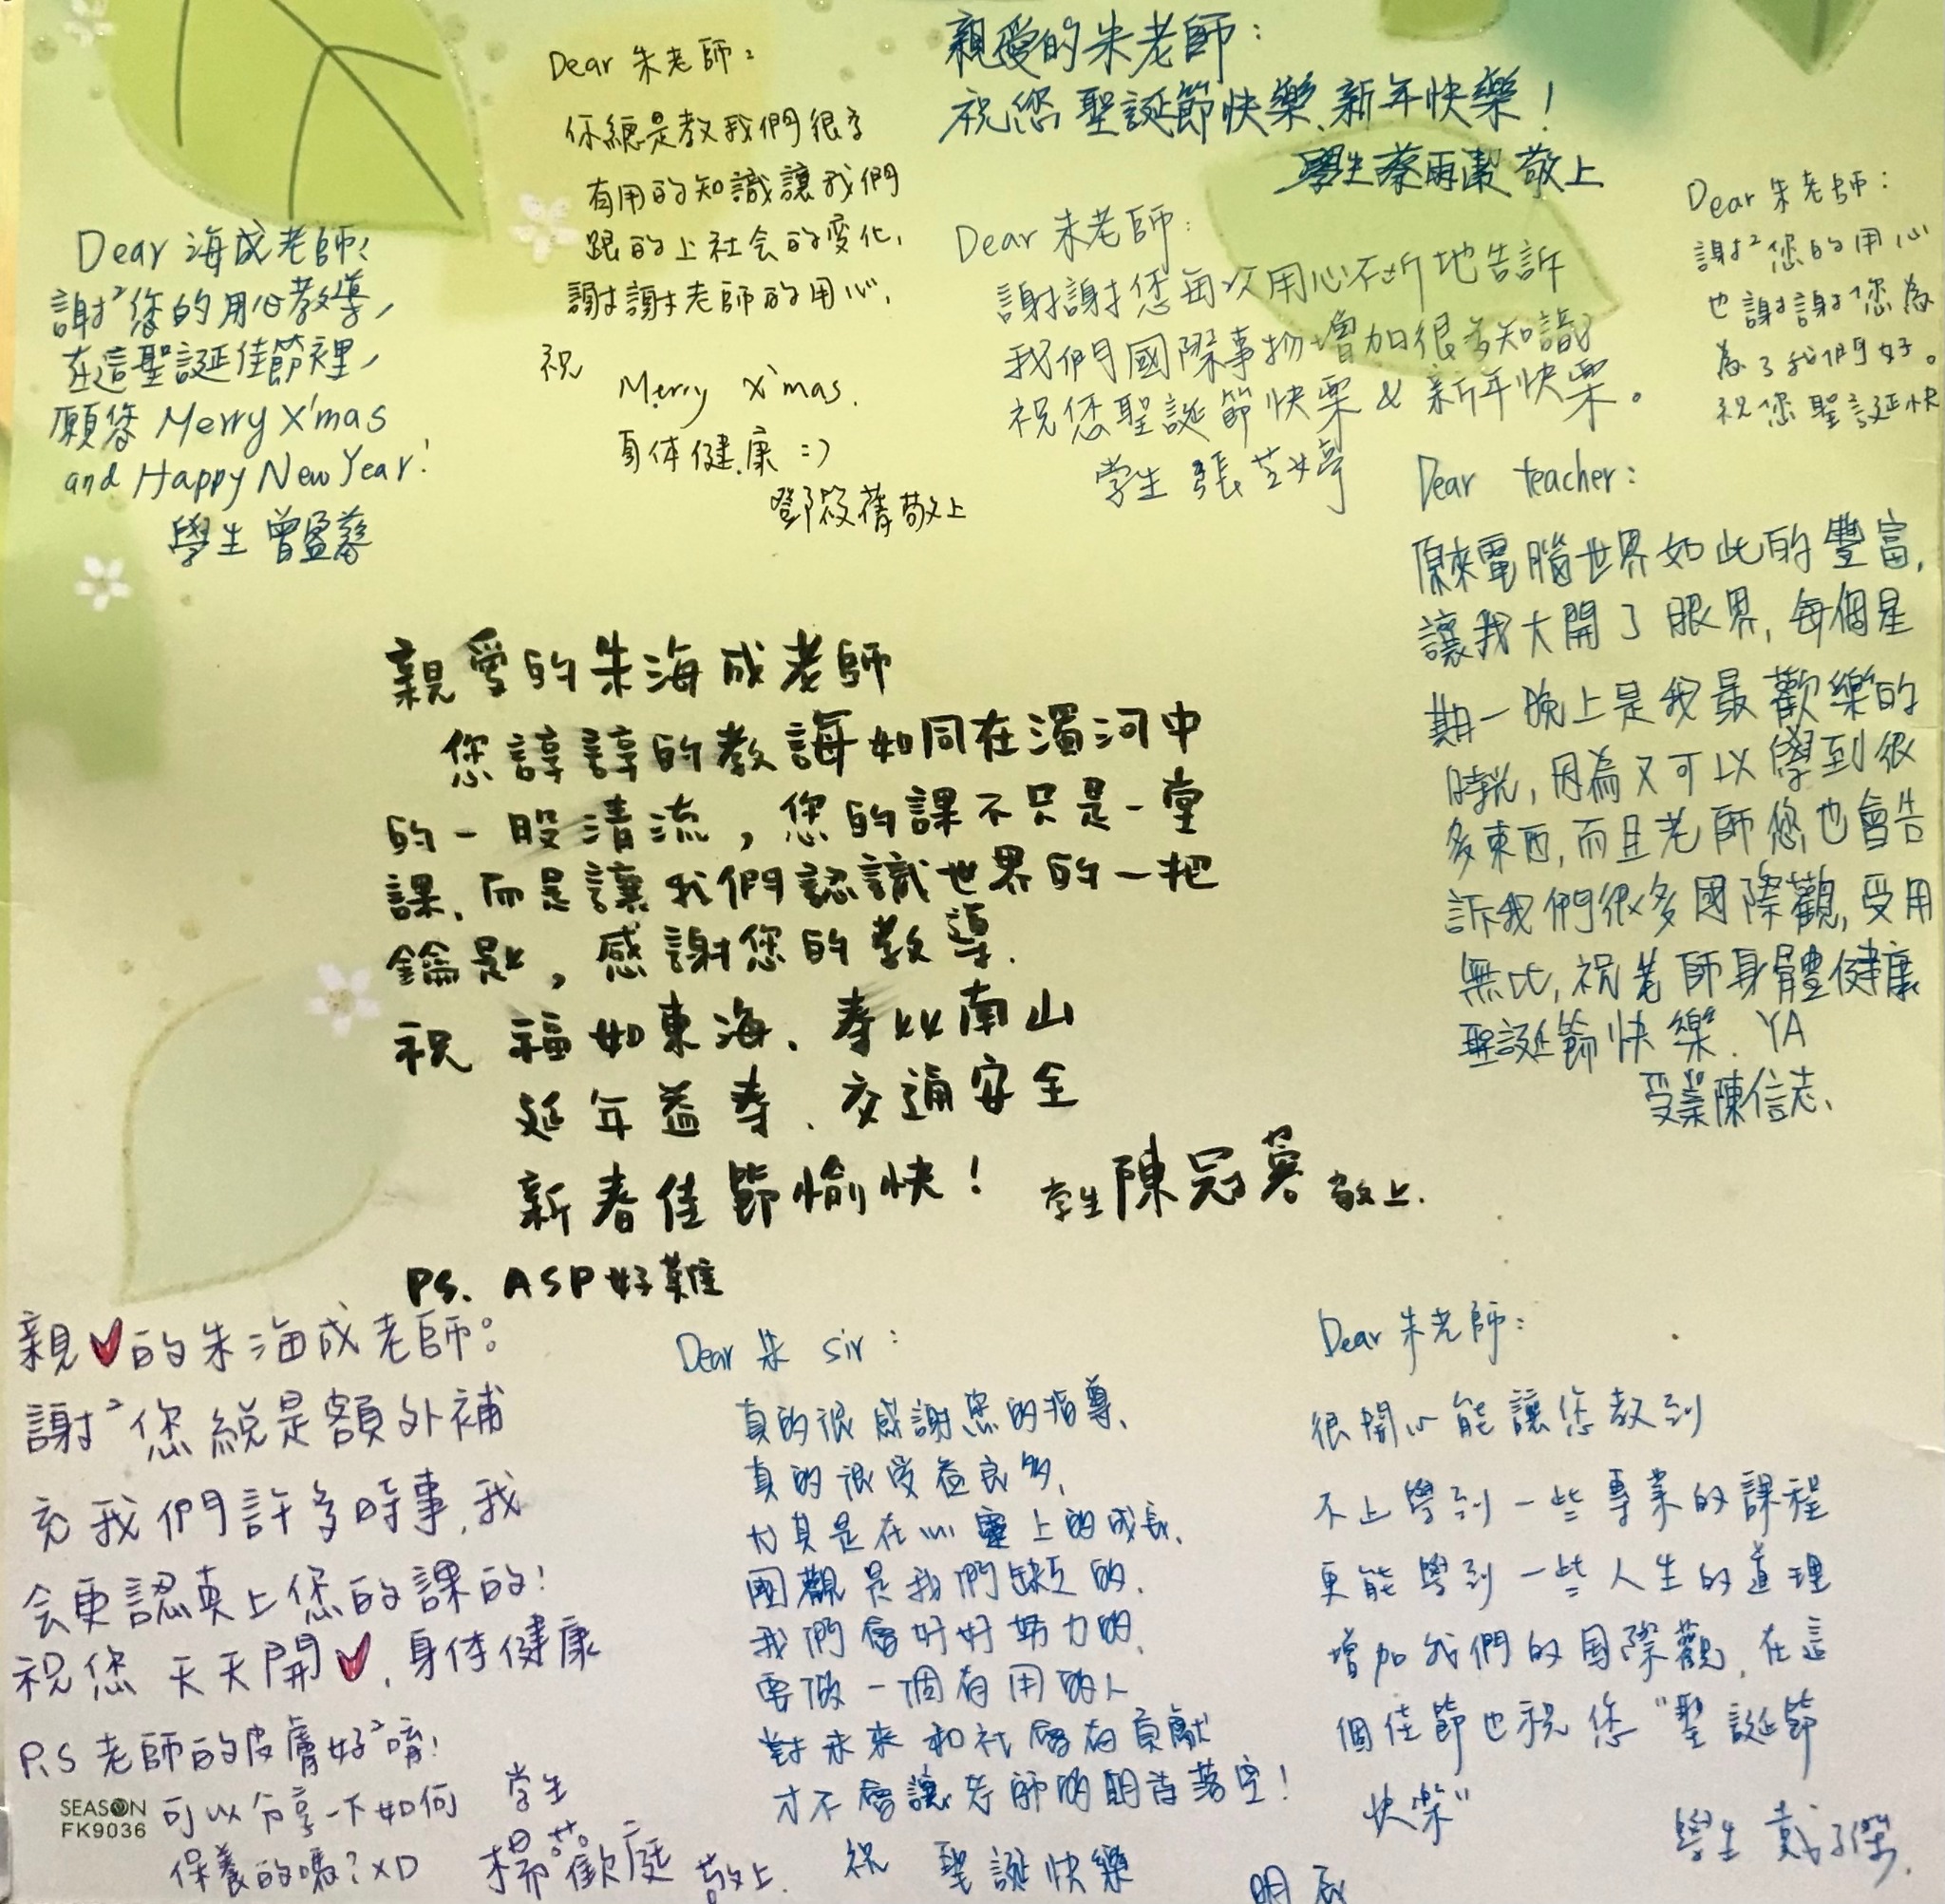 Dear 海成老師!
謝²您的用心教導,
在這聖誕佳節裡,
願您 Merry X'mas
and Happy New Year!
學生 曾盈馨
Dear 朱老師:
你總是教我們很多
有用的知識讓我們
跟的上社会的变化,
謝謝老師的用心,
祝
Merry X'mas.
身体健康 :)
鄧筱蒨敬上
親愛的朱老師:
祝您 聖誕節快樂、新年快樂!
學生蔡雨潔 敬上
Dear 朱老師:
謝謝您每次用心不斷地告訴
我們國際事物增加很多知識
祝您聖誕節快栗 & 新年快栗。
学生 張芝婷
Dear 朱老師:
謝²您的用心
也謝謝您為
為了我們好。
祝您聖誕快
Dear teacher:
原來電腦世界如此的豐富,
讓我大開了眼界, 每個星
期一晚上是我最歡樂的
時光, 因為又可以學到很
多東西, 而且老師您也會告
訴我們很多國際觀, 受用
無比, 祝老師身體健康
聖誕節快樂. YA
受業陳信志、
親愛的朱海成老師
您諄諄的教誨如同在濁河中
的一股清流,您的課不只是一堂
課、而是讓我們認識世界的一把
鑰匙,感謝您的教導.
祝 福如東海、壽比南山
延年益壽、交通安全
新春佳節愉快!
学生陳冠蓉 敬上.
PS. ASP好難
親♥的朱海成老師:
謝²您總是額外補
充我們許多時事,我
会更認真上您的課的!
祝您 天天開♥,身体健康
P.S 老師的皮膚好²唷!
可以分享一下如何
保養的嗎? XD
学生
楊歡庭 敬上.
SEASON
FK9036
Dear 朱 sir:
真的很感謝您的指導、
真的很受益良多,
尤其是在心靈上的成長、
國觀是我們缺乏的、
我們會好好努力的、
要做一個有用的人
對未來和社會有貢獻
才不會讓老師的期待落空!
祝 聖誕快樂
明辰
Dear 朱老師:
很開心能讓您教到
不止學到一些專業的課程
更能學到一些人生的道理
增加我們的国際觀, 在這
個佳節也祝您 "聖誕節
快樂"
學生 戴子傑.